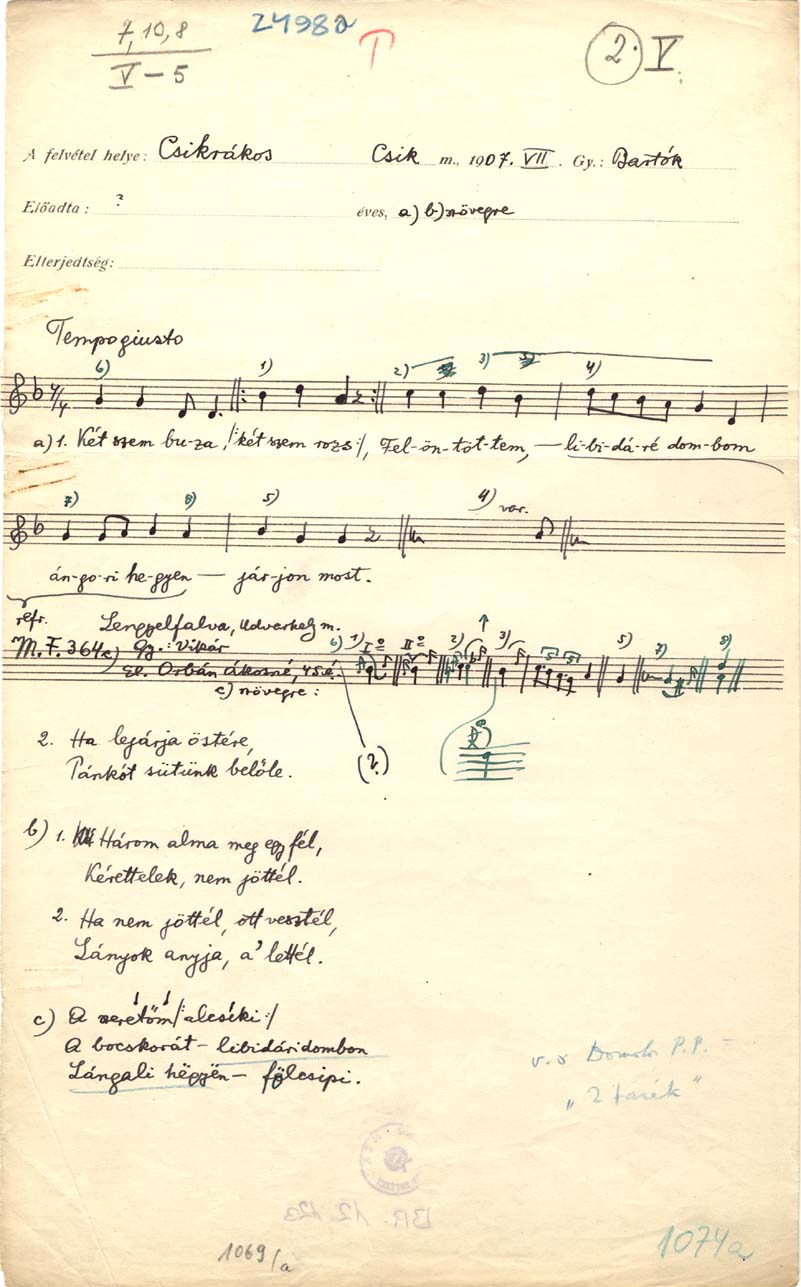 7, 10, 8
V – 5
24980
T
2. V.
A felvétel helye: Csikrákos Csik m., 1907. VII. Gy.: Bartók
Előadta: ? éves, a) b) szövegre
Elterjedtség:
Tempo giusto
6) 1) 2) 3) 4)
a) 1. Két szem bu-za, /:két szem rozs:/, Fel-ön-töt-tem, — li-bi-dá-ré dom-bom
7) 8) 5) 4) var.
án-go-ri he-gyen — jár-jon most.
refr.
Lengyelfalva, Udvarhely m.
M. F. 364c) Gy.: Vikár
El. Orbán Ákosné, 45 é.
c) szövegre:
6) 1) I° II° 2) 3) 5) 7) 8)
2. Ha lejárja östére,
Pánkót sütünk belőle.
(?)
b) 1. Három alma meg egy fél,
Kérettelek, nem jöttél.
2. Ha nem jöttél, ott vesztél,
Lányok anyja, a' lettél.
c) A szeretöm /:alcsíki:/
A bocskorát – libidáridombon
Lángali hëgyën – fölcsipi.
P.P. –
BR. 12.123
1069/a
1074a